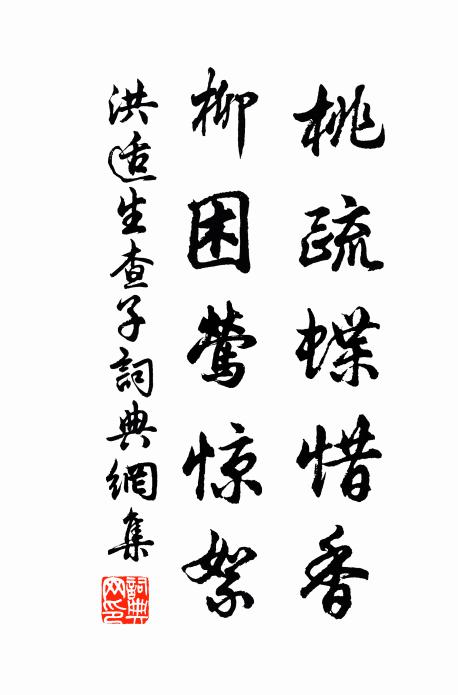 桃疏蝶惜香
柳困莺惊絮
洪适生查子詞典網集
詞典網印